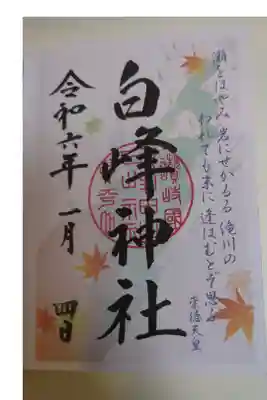 瀬をはやみ岩にせかるる滝川の
われても末に逢はむとぞ思ふ
崇徳天皇
白峰神社
令和六年一月四日